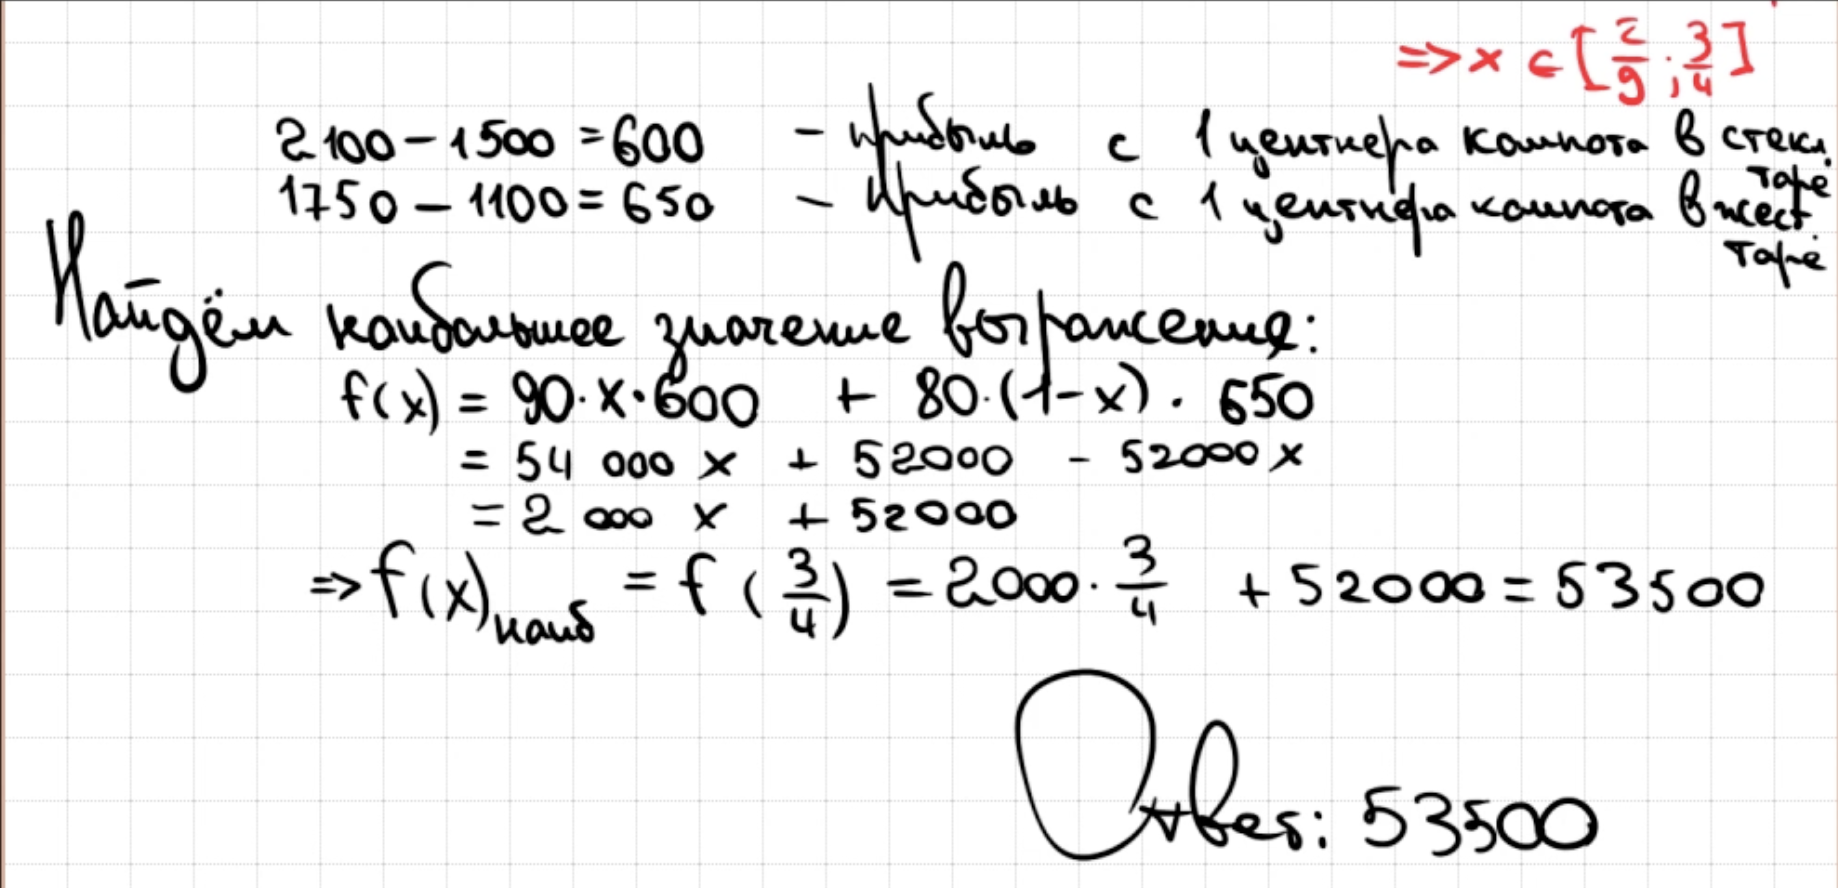 => x ∈ [2/9 ; 3/4]
2100 - 1500 = 600 - прибыль с 1 центнера компота в стекл. таре
1750 - 1100 = 650 - прибыль с 1 центнера компота в жест. таре
Найдём наибольшее значение выражения:
f(x) = 90·x·600 + 80·(1-x)·650
= 54 000 x + 52000 - 52000 x
= 2 000 x + 52000
=> f(x) наиб = f(3/4) = 2000 · 3/4 + 52000 = 53500
Ответ: 53500